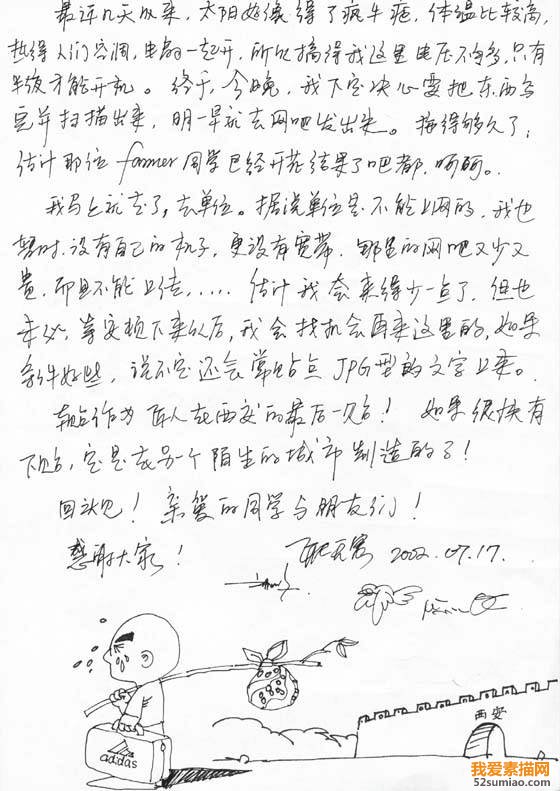 最近几天以来，太阳好像得了疯牛症，体温比较高，
热得人们空调，电扇一起开，所以搞得我这里电压不够，只有
半夜才能开机。终于，今晚，我下定决心要把东西写
完并扫描出来，明一早就去网吧发出去。拖得够久了，
估计那位farmer同学已经开花结果了吧都，呵呵。
我马上就走了，去单位。据说单位是不能上网的，我也
暂时没有自己的机子，更没有宽带，那里的网吧又少又
贵，而且不能上传，……估计我会来得少一点了，但也
未必，等安顿下来以后，我会找机会再来这里的，如果
条件好些，说不定还会常贴点JPG型的文字上来。
在西安的最后一贴！如果很快有
下贴，定是在另一个陌生的城市制造的了！
回头见！亲爱的同学与朋友们！
感谢大家！
2002.07.17.
adidas
西安
我爱素描网
52sumiao.com